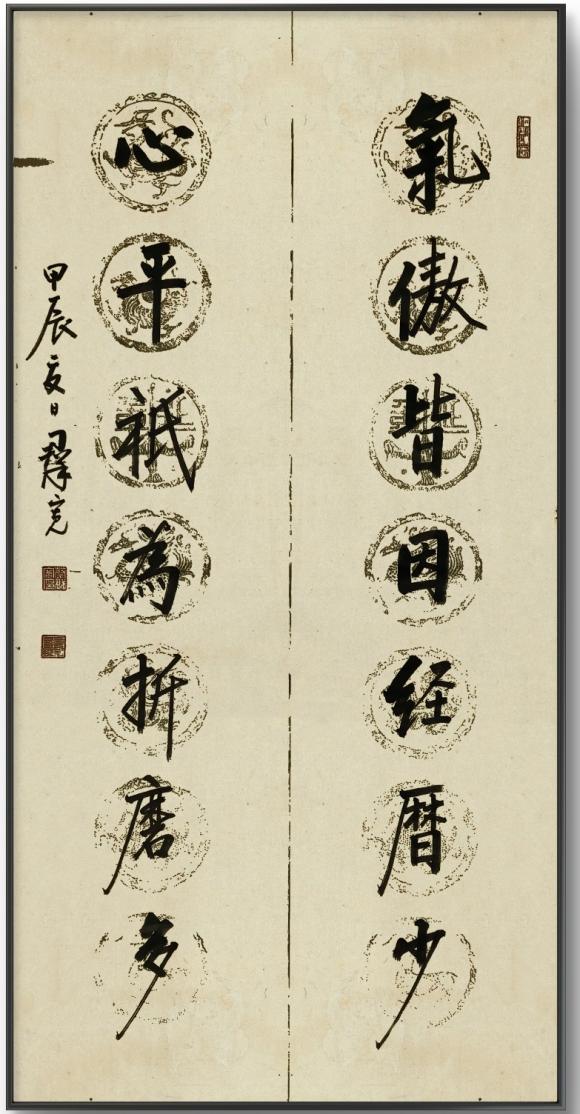 氣傲皆因经暦少
心平祇為折磨多
甲辰夏日